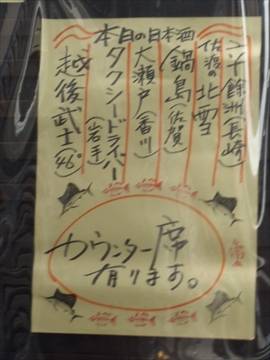 本日の日本酒
六十餘洲(長崎)
佐渡の北雪
鍋島(佐賀)
大瀬戸(香川)
タクシードライバー(岩手)
越後武士(46°)
カウンター席
有ります。